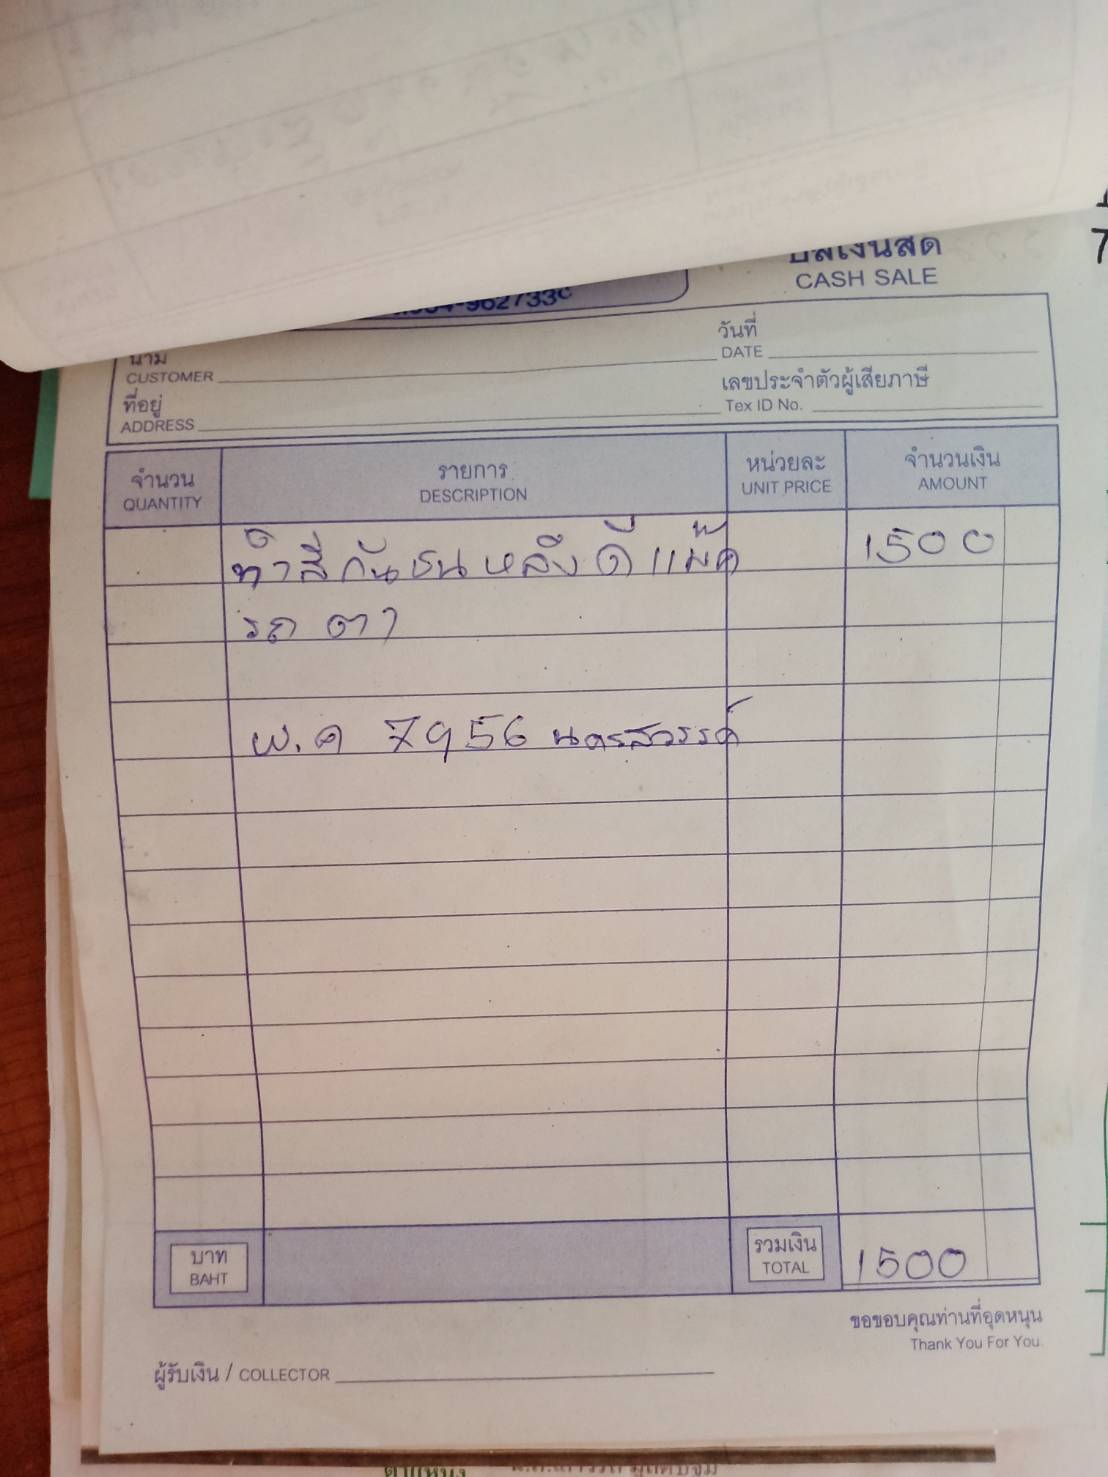 บิลเงินสด
CASH SALE
962733
นาม
CUSTOMER
วันที่
DATE
ที่อยู่
ADDRESS
เลขประจำตัวผู้เสียภาษี
Tex ID No.
จำนวน
QUANTITY
รายการ
DESCRIPTION
หน่วยละ
UNIT PRICE
จำนวนเงิน
AMOUNT
ทำสีกันชนหลังดีแม๊ค 1500
รถ ตา
7956 นครสวรรค์
บาท
BAHT
รวมเงิน
TOTAL
1500
ขอขอบคุณท่านที่อุดหนุน
Thank You For You.
ผู้รับเงิน / COLLECTOR